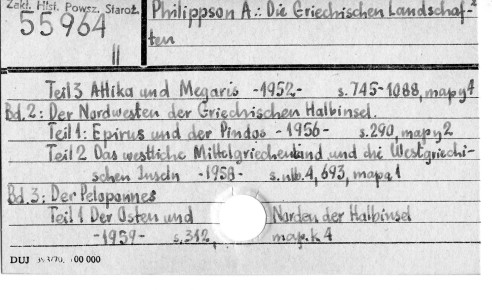 Zakł. Hist. Powsz. Staroż.
55964
||
Philippson A.: Die Griechischen Landschaf-
ten
Teil 3 Attika und Megaris -1952- s. 745-1088, mapy 4
Bd. 2: Der Nordwesten der Griechischen Halbinsel.
Teil 1: Epirus und der Pindos -1956- s. 290, mapy 2
Teil 2 Das westliche Mittelgriechenland und die Westgriechi-
schen Inseln -1958- s. nlb. 4, 693, mapa 1
Bd. 3: Der Peloponnes
Teil 1 Der Osten und Norden der Halbinsel
-1959- s. 312, map. k 4
DUJ 100 000